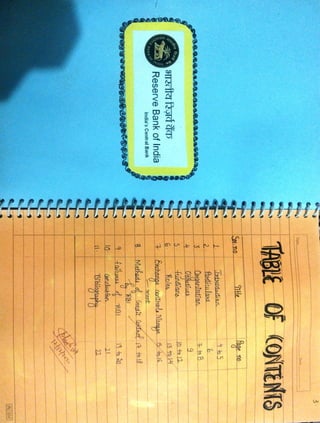 भारतीय रिज़र्व बैंक
Reserve Bank of India
India's Central Bank
3
TABLE OF CONTENTS
Sr. no Title Page no
1 Introduction 4 to 5
2 6
3 Organisation 7 to 8
4 Objectives 9
5 Functions 10 to 12
6 Roles 13 to 14
7 Exchange control & Manage
ment 15 to 16
8 Methods of Credit Control
by RBI 17 to 18
9 Failures of RBI 19 to 20
10 Conclusion 21
11 Bibliography 22